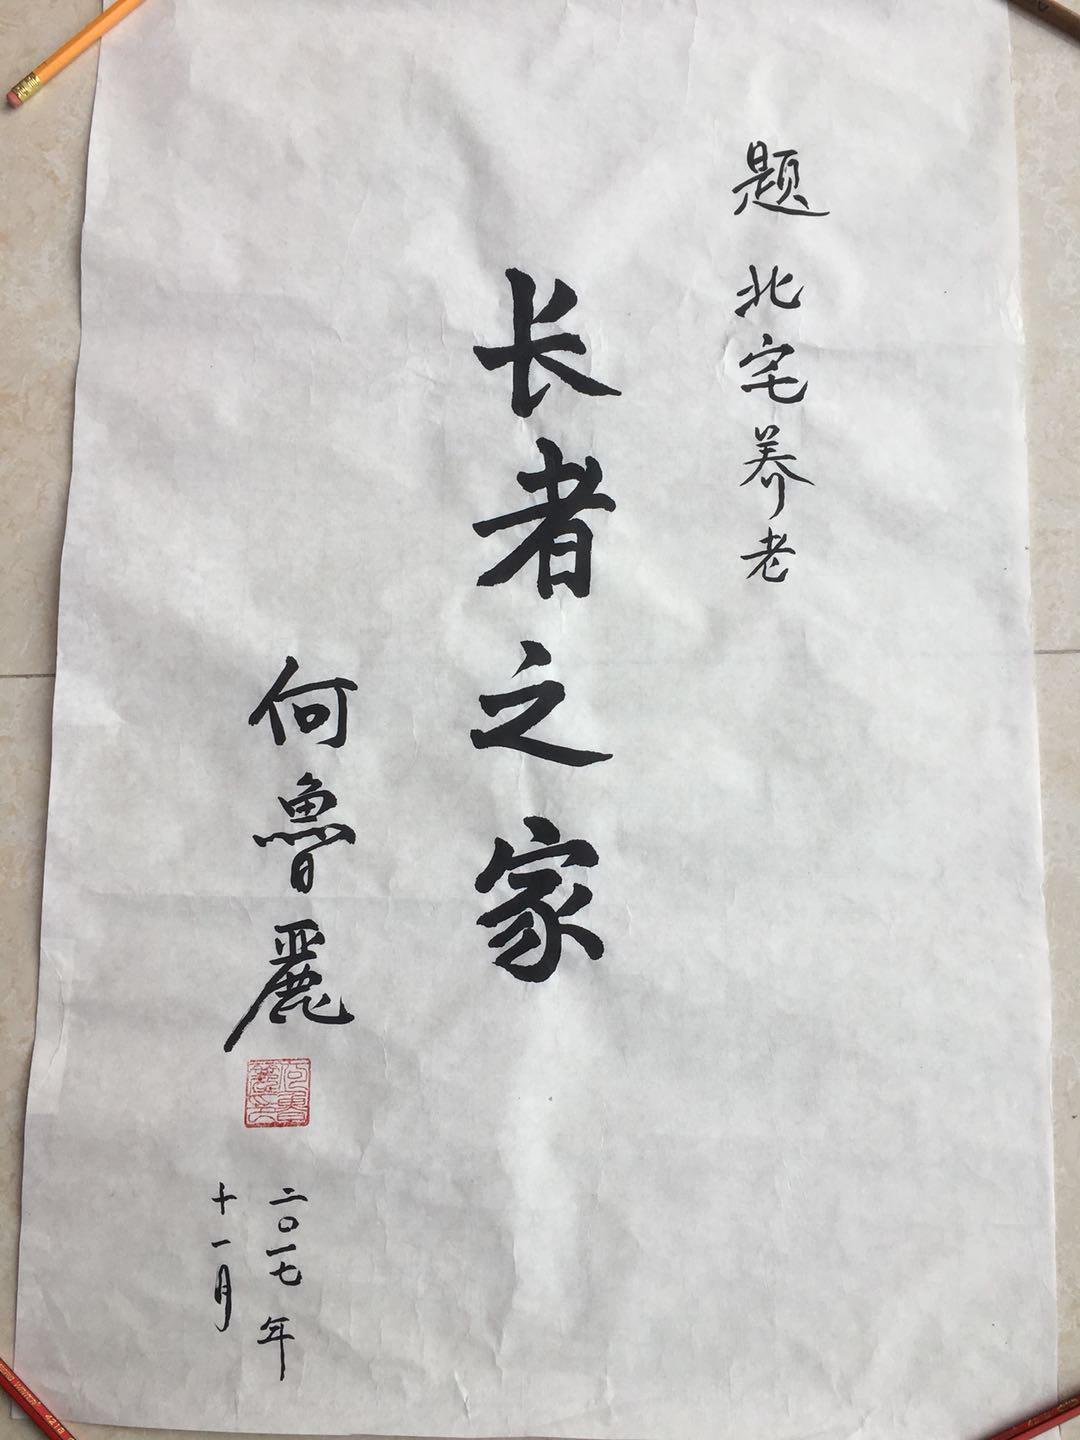 题 北宅养老
长者之家
何魯麗
二〇一七年
十一月